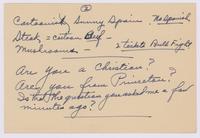 2
Cartoonist Sunny Spain No Spanish
Steak = cartoon Bull -
Mushrooms 2 tickets Bull Fight
Are you a Christian?
Are you from Princeton?
Is that the question you asked me a few
minutes ago?